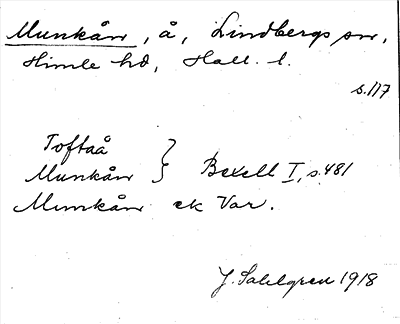 Munkån, å, Lindbergs sn,
Himle hd, Hall. l.
s.117
Toftaå
Munkån } Bexell I, s. 481
Munkån ek Var.
J. Sahlgren 1918